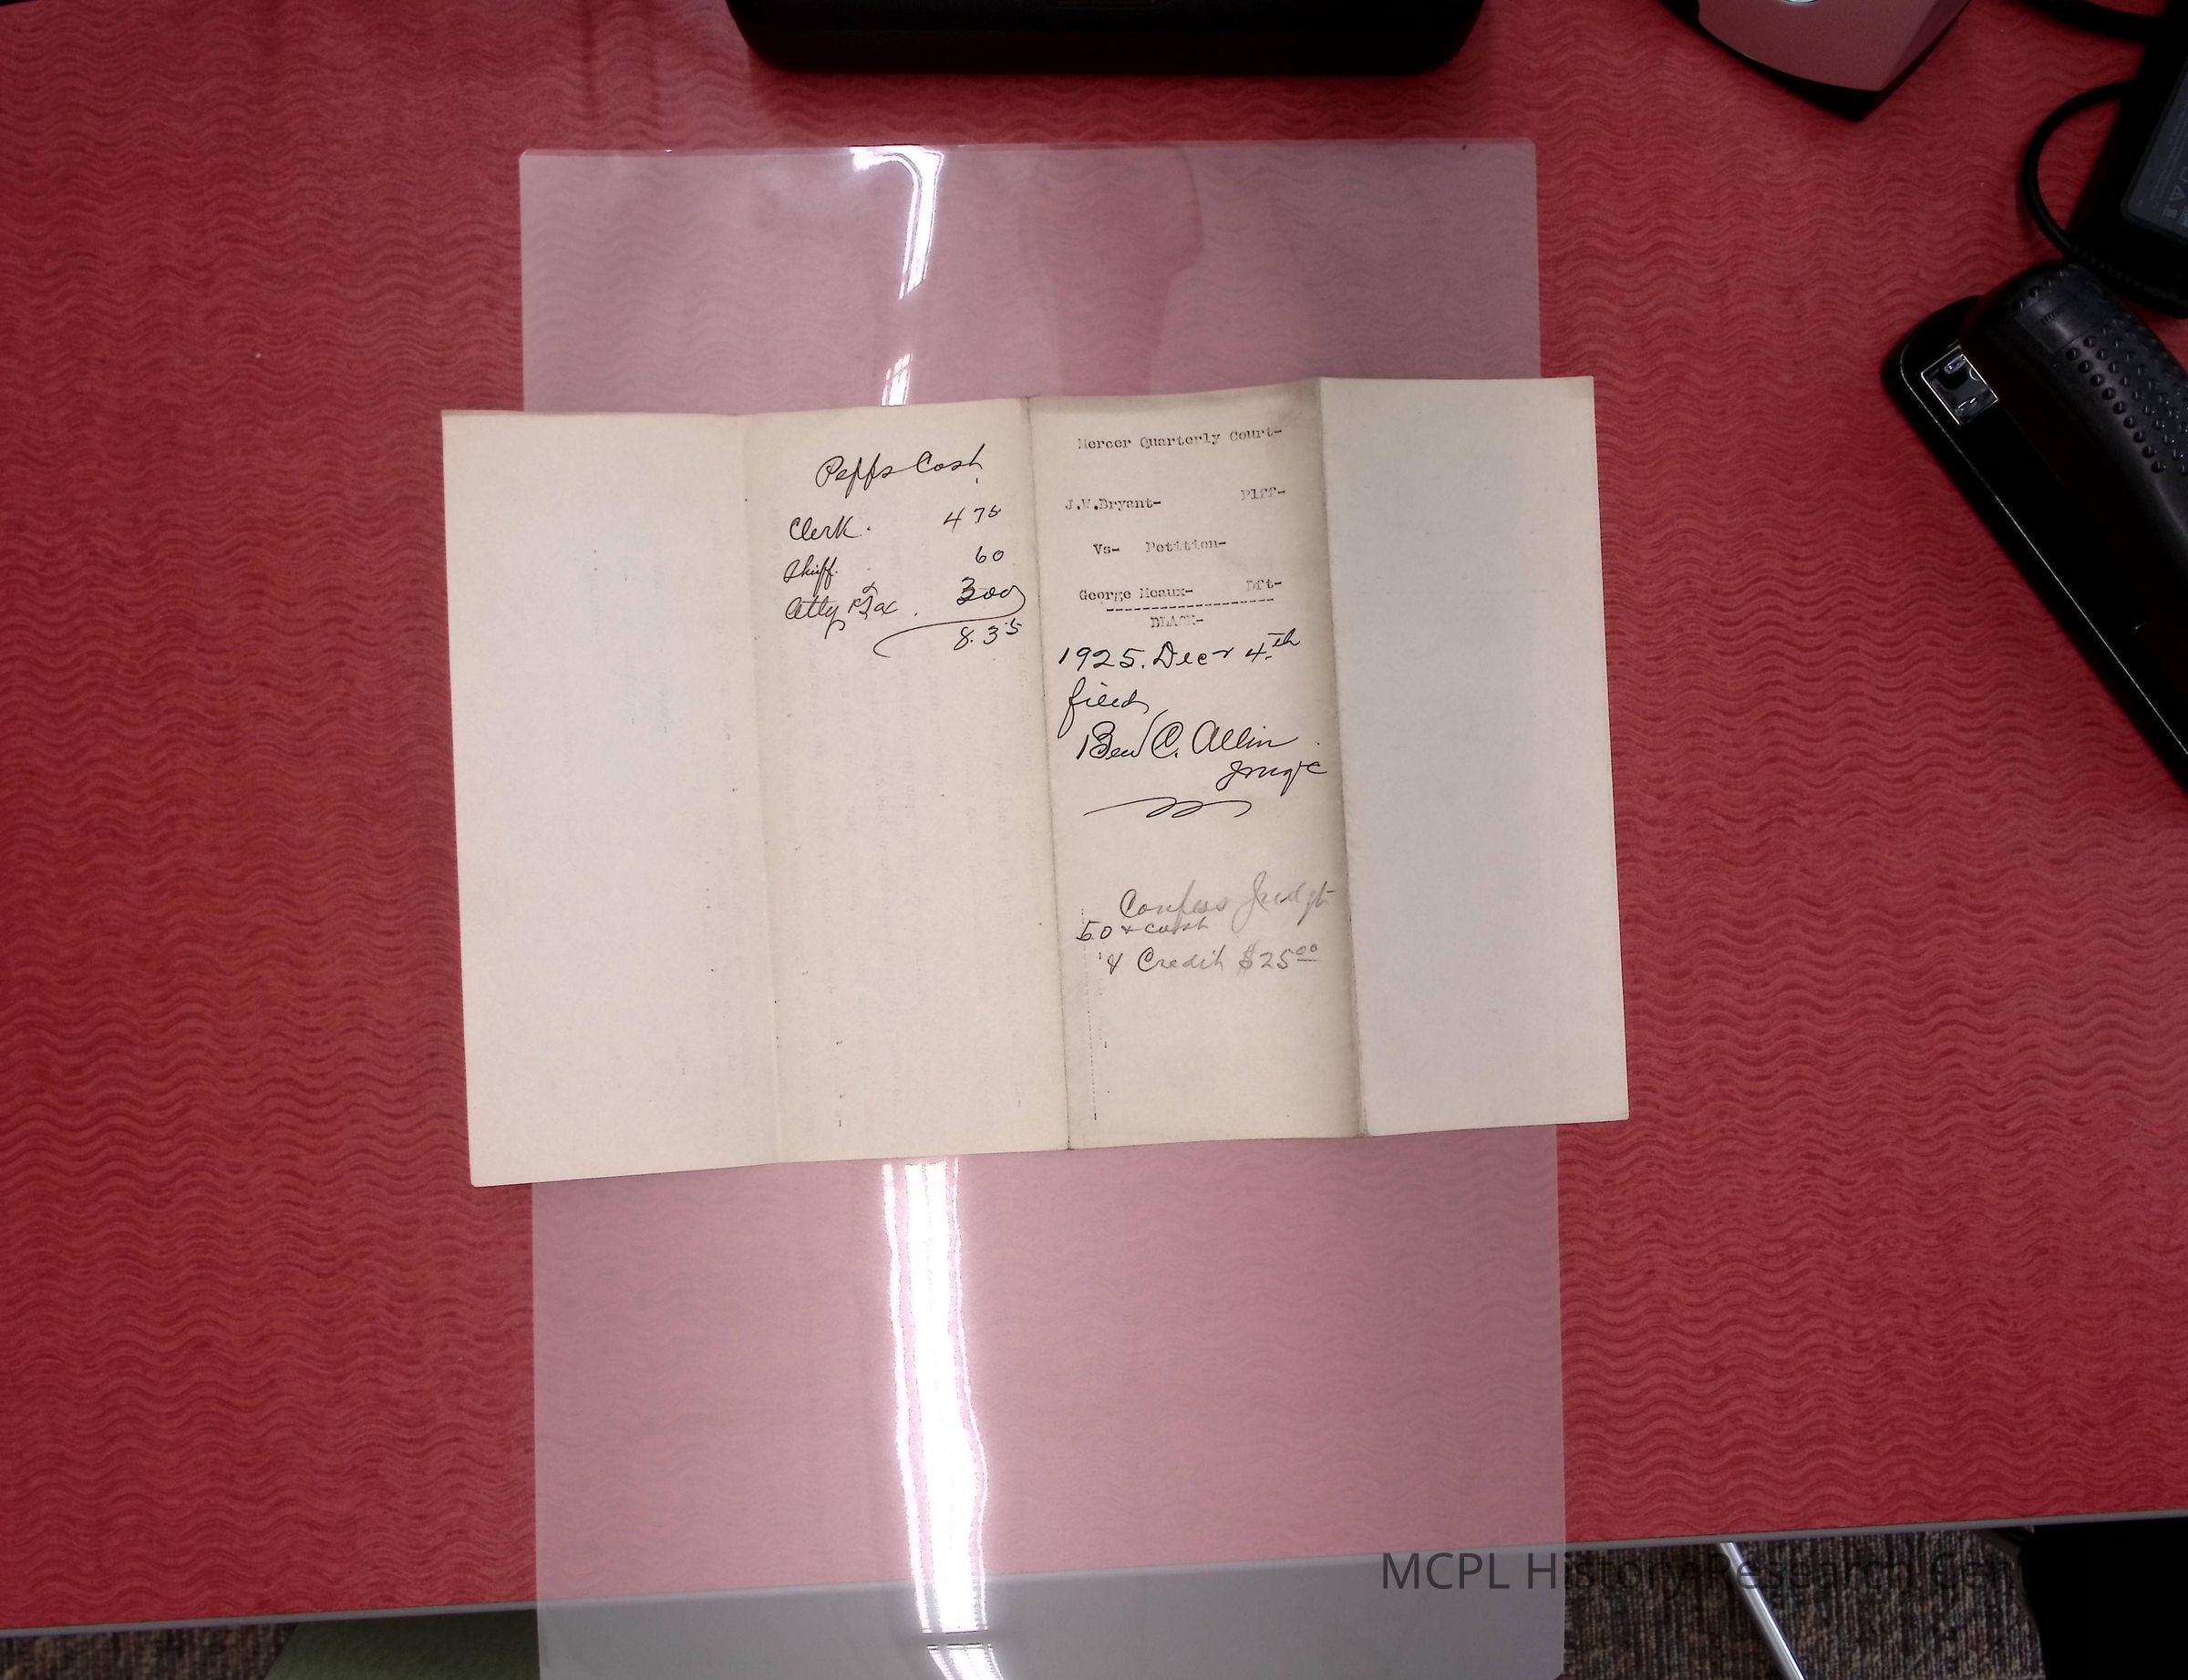 Peffs Cost
Clerk. 4 75
Shiff. 60
Atty & Tax. 300
8.35
Mercer Quarterly Court-
J.W.Bryant- Plff-
Vs- Petition-
George Meaux- Dft-
BLACK-
1925. Decr 4th
filed
Ben C. Allin
Judge
Confess Judgt
50 & cost
& Credit $25 00
MCPL History Research Cen